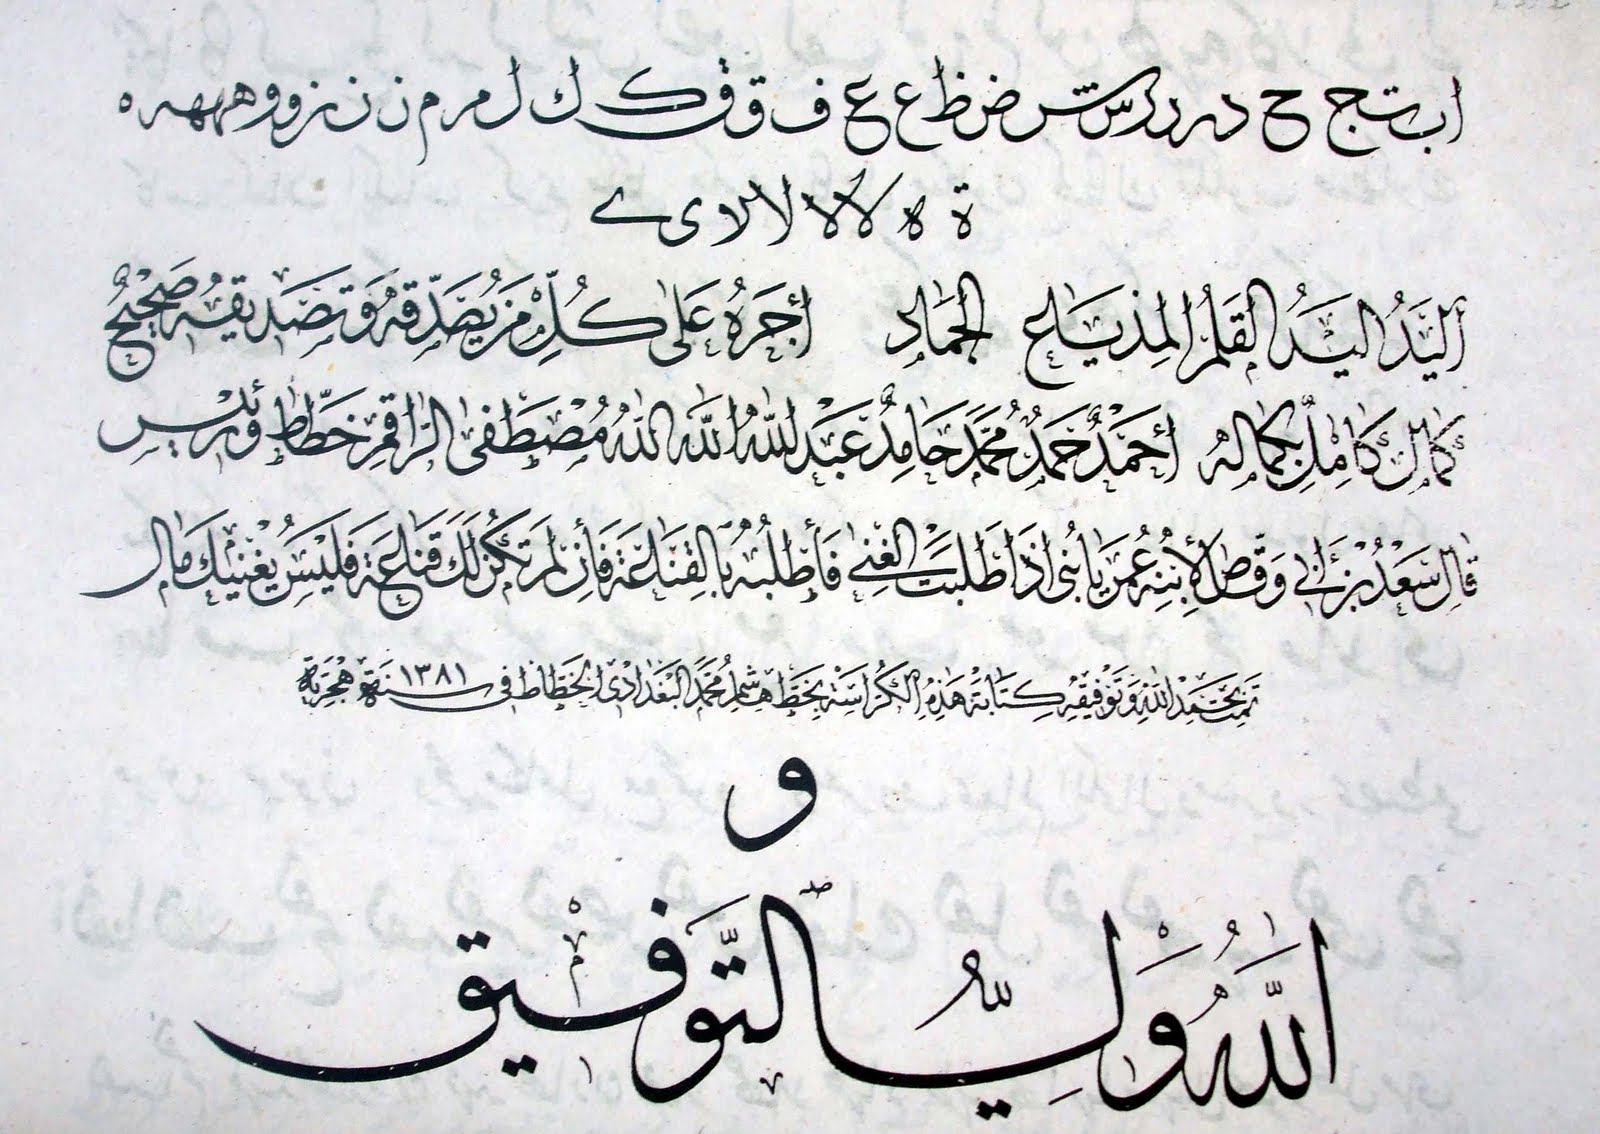 ا ب ت ج ح د ر د ر س ش ض ظ ع ع ف ق و ف ك ك ل م ر م ن ن ن ز و و ه ه ه ه
ة ه لا لا لا لا ى ے
أَلْيَدُ اليَدُ القَلَمُ المِذيَاع الجَمَاد أجرهُ عَلى كُلِّ مَن يُصَدِّقهُ وَتصَديقهُ صَحيحٌ
كمال كَامِل بكماله أحمَدُ حَمَدُ مُحَمَّد حَامِدُ عَبْدُ اللهُ اللهُ اللهُ مُصْطَفى الرَاقِم خَطّاط وَئيس
قال سَعْدُ بن أبى وَقّاص لأبنِه عُمَر يَا بُنى اذَا طَلبتَ الغِنٰى فَأطْلبهُ بالقَنَاعَة فَأن لم تَكُن لَكَ قَنَاعَة فَلَيسَ يُغْنيكَ مَال
تمت بحَمْدِ اللهِ وَتَوْفيقِهِ كِتابَة هَذِهِ الكُرّاسَة بِخَطِّ هَاشِم مُحَمَّد البَغدَادى الخَطّاط فى سَنَة ١٣٨١ هِجْرِيَّة
و
اللهُ وَلِيُّ التَّوْفِيق